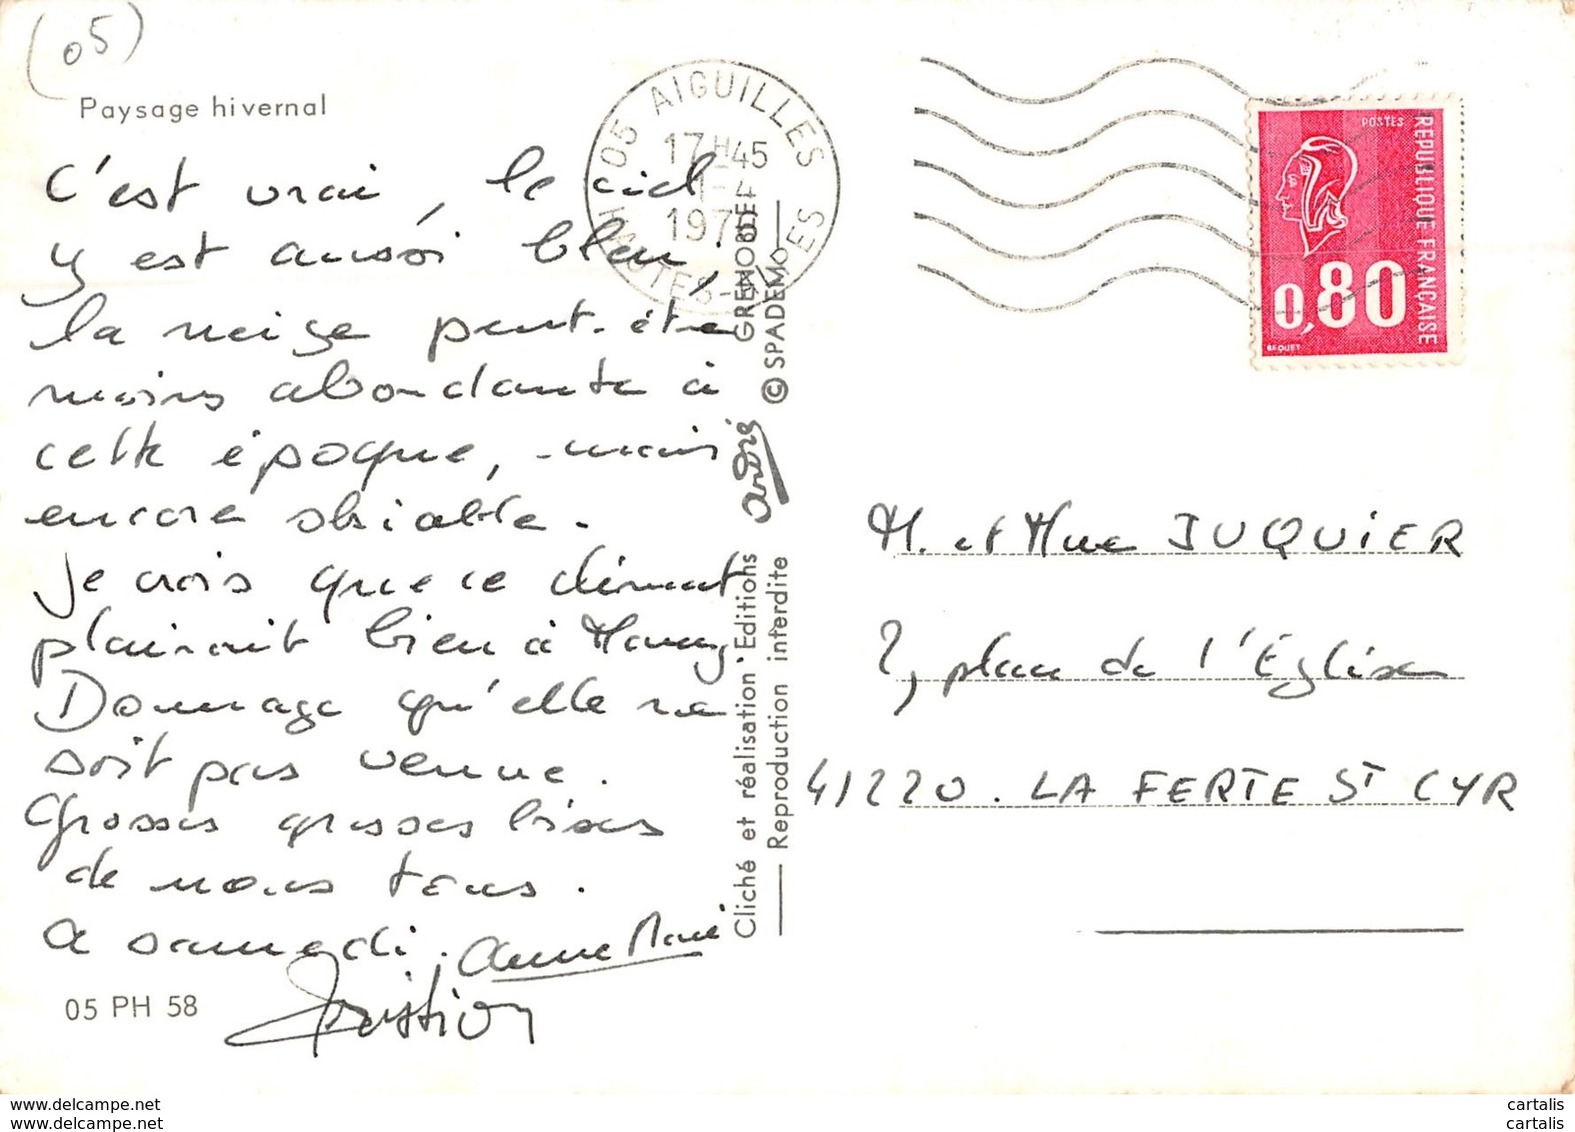 (05)
Paysage hivernal
C'est vrai, le ciel
y est aussi bleu,
la neige peut-être
moins abondante à
cette époque, mais
encore skiable.
Je crois que ce climat
plairait bien à Mamy
Dommage qu'elle ne
soit pas venue.
Grosses grosses bises
de nous tous.
A samedi. Anne Marie
Christian
05 PH 58
05 AIGUILLES
17H45
1-4
HAUTES-ALPES
Cliché et réalisation Editions André GRENOBLE
Reproduction interdite © SPADEM
POSTES
REPUBLIQUE FRANÇAISE
0,80
BEQUET
M. et Mme JUQUIER
2, place de l'Église
41220. LA FERTE ST CYR
www.delcampe.net
cartalis
www.delcampe.net
cartalis